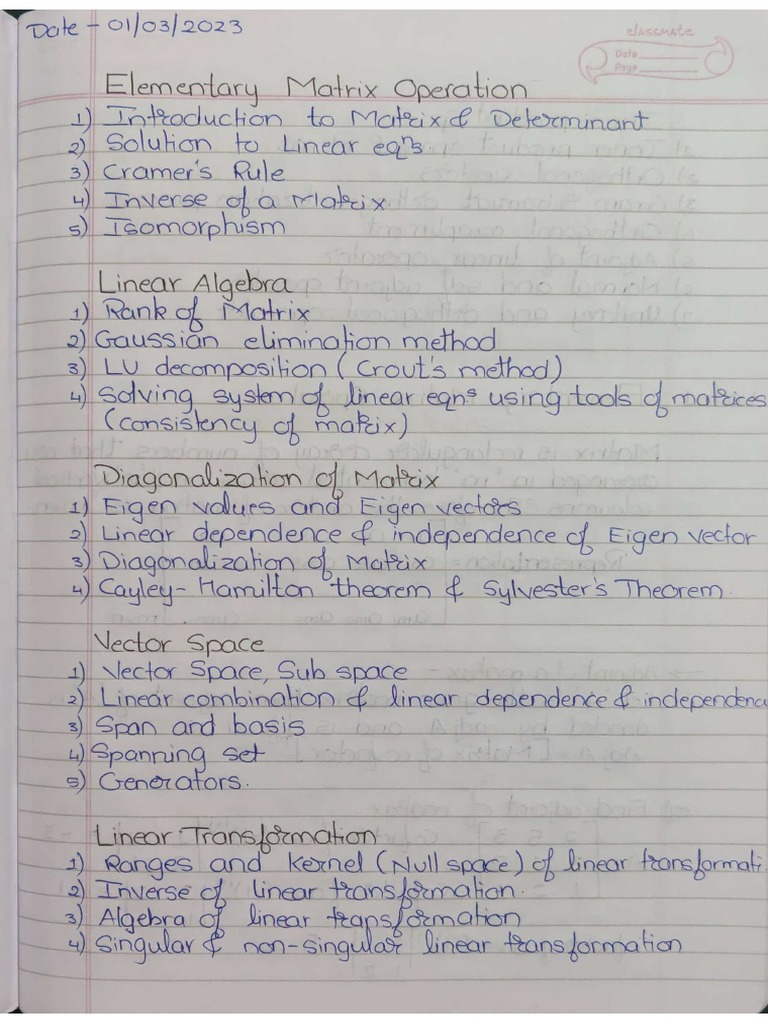 Date - 01/03/2023
classmate
Date
Page
Elementary Matrix Operation
1) Introduction to Matrix & Determinant
2) Solution to Linear eqⁿs.
3) Cramer's Rule
4) Inverse of a Matrix
5) Isomorphism
Linear Algebra
1) Rank of Matrix
2) Gaussian elimination method
3) LU decomposition (Crout's method)
4) Solving system of linear eqnˢ using tools of matrices
(consistency of matrix)
Diagonalization of Matrix
1) Eigen values and Eigen vectors
2) Linear dependence & independence of Eigen vector
3) Diagonalization of Matrix
4) Cayley-Hamilton theorem & Sylvester's Theorem.
Vector Space
1) Vector Space, Sub space
2) Linear combination & linear dependence & independenc
3) Span and basis
4) Spanning set
5) Generators.
Linear Transformation
1) Ranges and Kernel (Null space) of linear transformati
2) Inverse of linear transformation.
3) Algebra of linear transformation
4) Singular & non-singular linear transformation